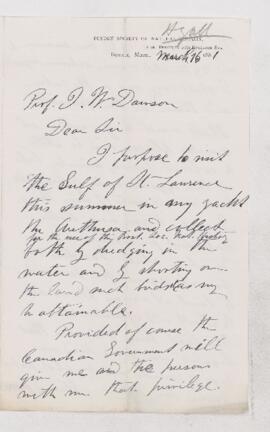 Hyatt
BOSTON SOCIETY OF NATURAL HISTORY,
Boston, Mass. March 16 1881
Prof. J. W. Dawson
Dear Sir
I purpose to visit
the Gulf of St. Lawrence
this summer in my yacht
the Arethusa and collect
for the use of the Bost. Soc. Nat. History
both by dredging in the
water and by shooting on
the land such birds as may
be attainable.
Provided of course the
Canadian Government will
give me and the persons
with me that privilege.